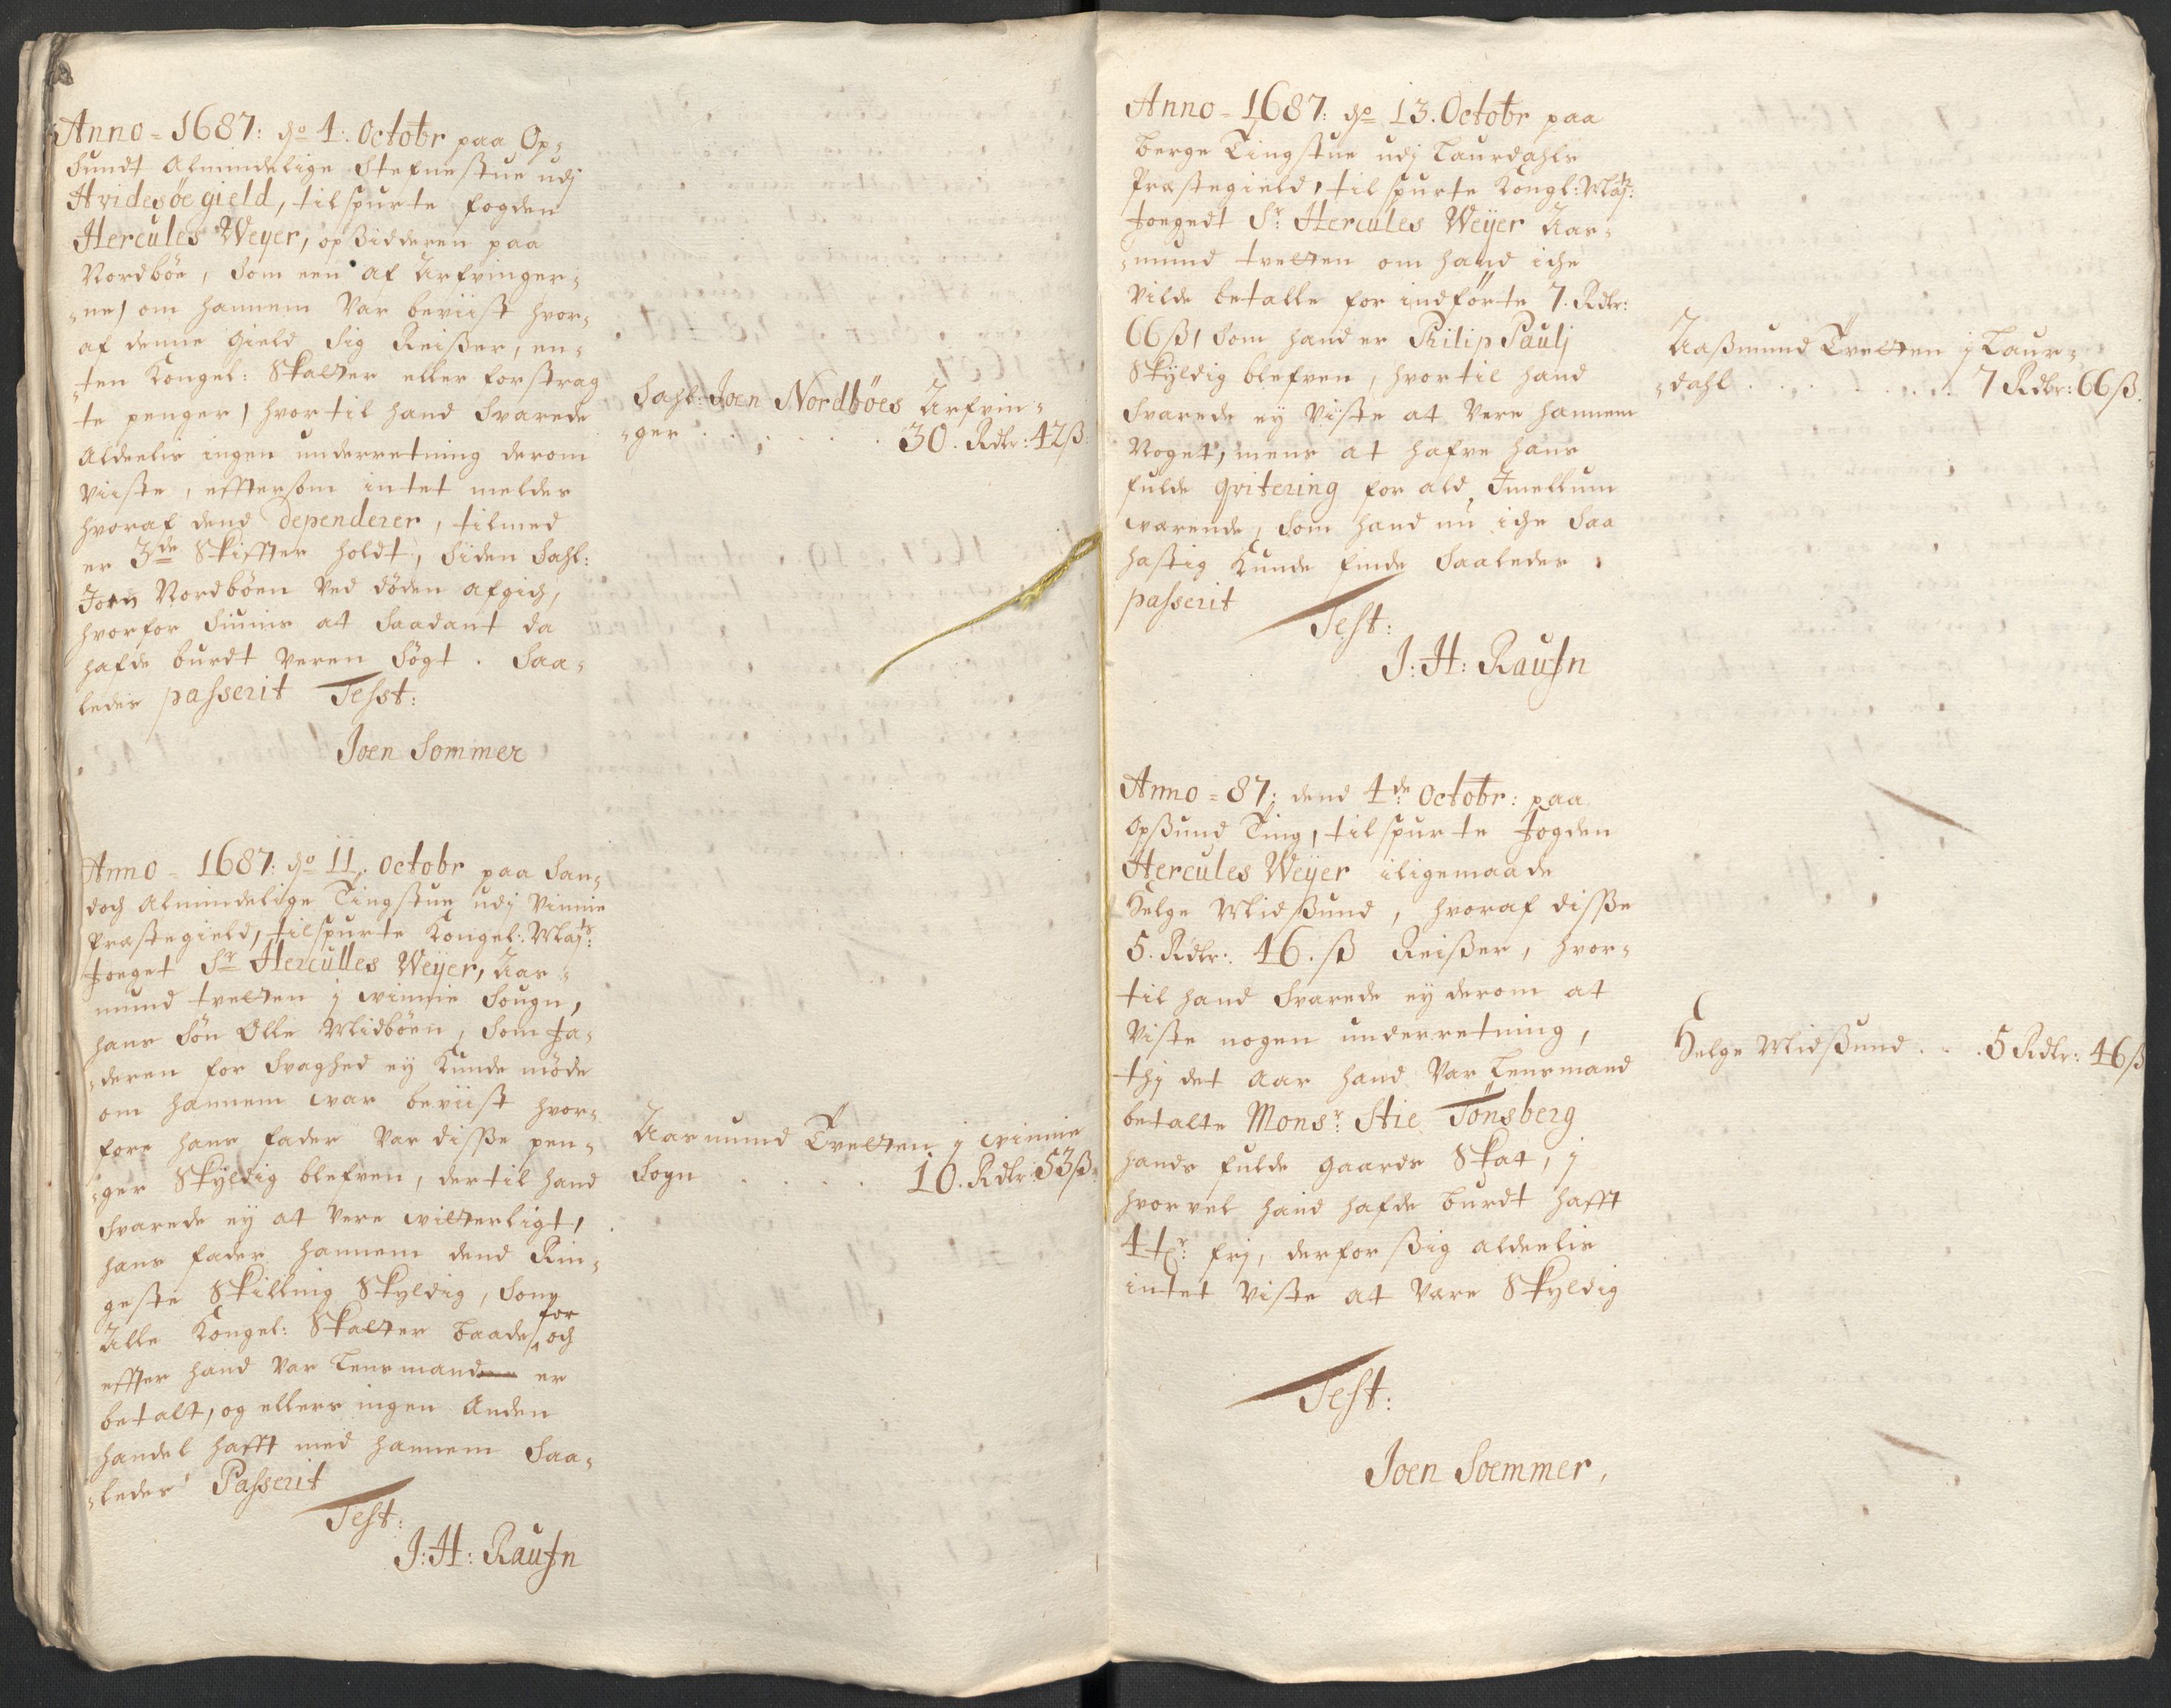 Anno = 1687: dn 4: Octobr paa Op-
sundt Almindelige Stefnestue udj
Hvidesöe gield, tilspurte fogden
Hercules Weyer, opsidderen paa
Nordböe, som een af Arfvinger-
ne, om hannem var beviist hvor-
af denne Gield sig Reißer, en-
ten Kongel: Skatter eller forstrag
te penger, hvortil hand svarede
aldeelis ingen underretning derom
viiste, efftersom intet melder
hvoraf dend dependerer, tilmed
er 3de Skiffter holdt, siden Sahl:
Joen Nordböen ved döden afgich,
hvorfor siunis at saadant da
hafde burdt veren sögt. Saa-
ledis passerit Test:
Joen Sommer
Sahl: Joen Nordböes Arfvin-
ger . . . . . . 30. Rdlr: 42ß
Anno = 1687: dn 11. Octobr paa San-
doch Almindelige Tingstue udj Vinnie
Præstegield, tilspurte Kongel: Mayts:
foeget Sr Hercülles Weyer, Aas-
mund tvetten j winnie Sougn,
hans Sön Olle Midböen, som fa-
deren for svaghed ey kunde möde
om hannem war beviist hvor-
fore hans fader var disse pen-
ger Skyldig blefven, dertil hand
svarede ey at vere witterligt,
hans fader hannem dend Rin-
geste Skilling Skyldig, som
Alle Kongel: Skatter baade for och
effter hand var Lensmand er
betalt, og ellers ingen anden
handel hafft med hannem Saa-
ledes Passerit
Test:
J: H: Raufn
Aasmund Tvetten j winnie
Sogn . . . . . 10. Rdlr: 53ß
Anno = 1687: dn 13. Octobr paa
Berge Tingstue udj Laurdahls
Præstegield, tilspurte Kongl: Mayts:
foegedt Sr: Hercules Weyer Aas-
mund tvetten om hand iche
vilde betalle for indförte 7. Rdlr:
66ß, som hand er Philip Paulj
Skyldig blefven, hvortil hand
svarede ey viste at vere hannem
Noget, mens at hafve hans
fulde qvitering for ald Imellum
værende, som hand nu iche saa
hastig kunde finde Saaledes
passerit
Test:
J: H: Raufn
Aaßmund Tvetten j Laur-
dahl . . . . . . . . 7 Rdlr: 66ß.
Anno = 87: dend 4de Octobr: paa
Opßund Ting, tilspurte fogden
Hercules Weyer iligemaade
Helge Midßund, hvoraf disse
5. Rdlr: 46. ß Reißer, hvor-
til hand svarede ey derom at
viste nogen underretning,
thj det aar hand var Lensmand
betalte Monsr: Stie Tönsberg
hands fulde gaards Skat, j
hvorvel hand hafde burdt hafft
frj, derfor ßig aldeelis
intet viste at være Skyldig
Test:
Joen Soemmer,
Helge Midßund . . . 5 Rdlr: 46ß